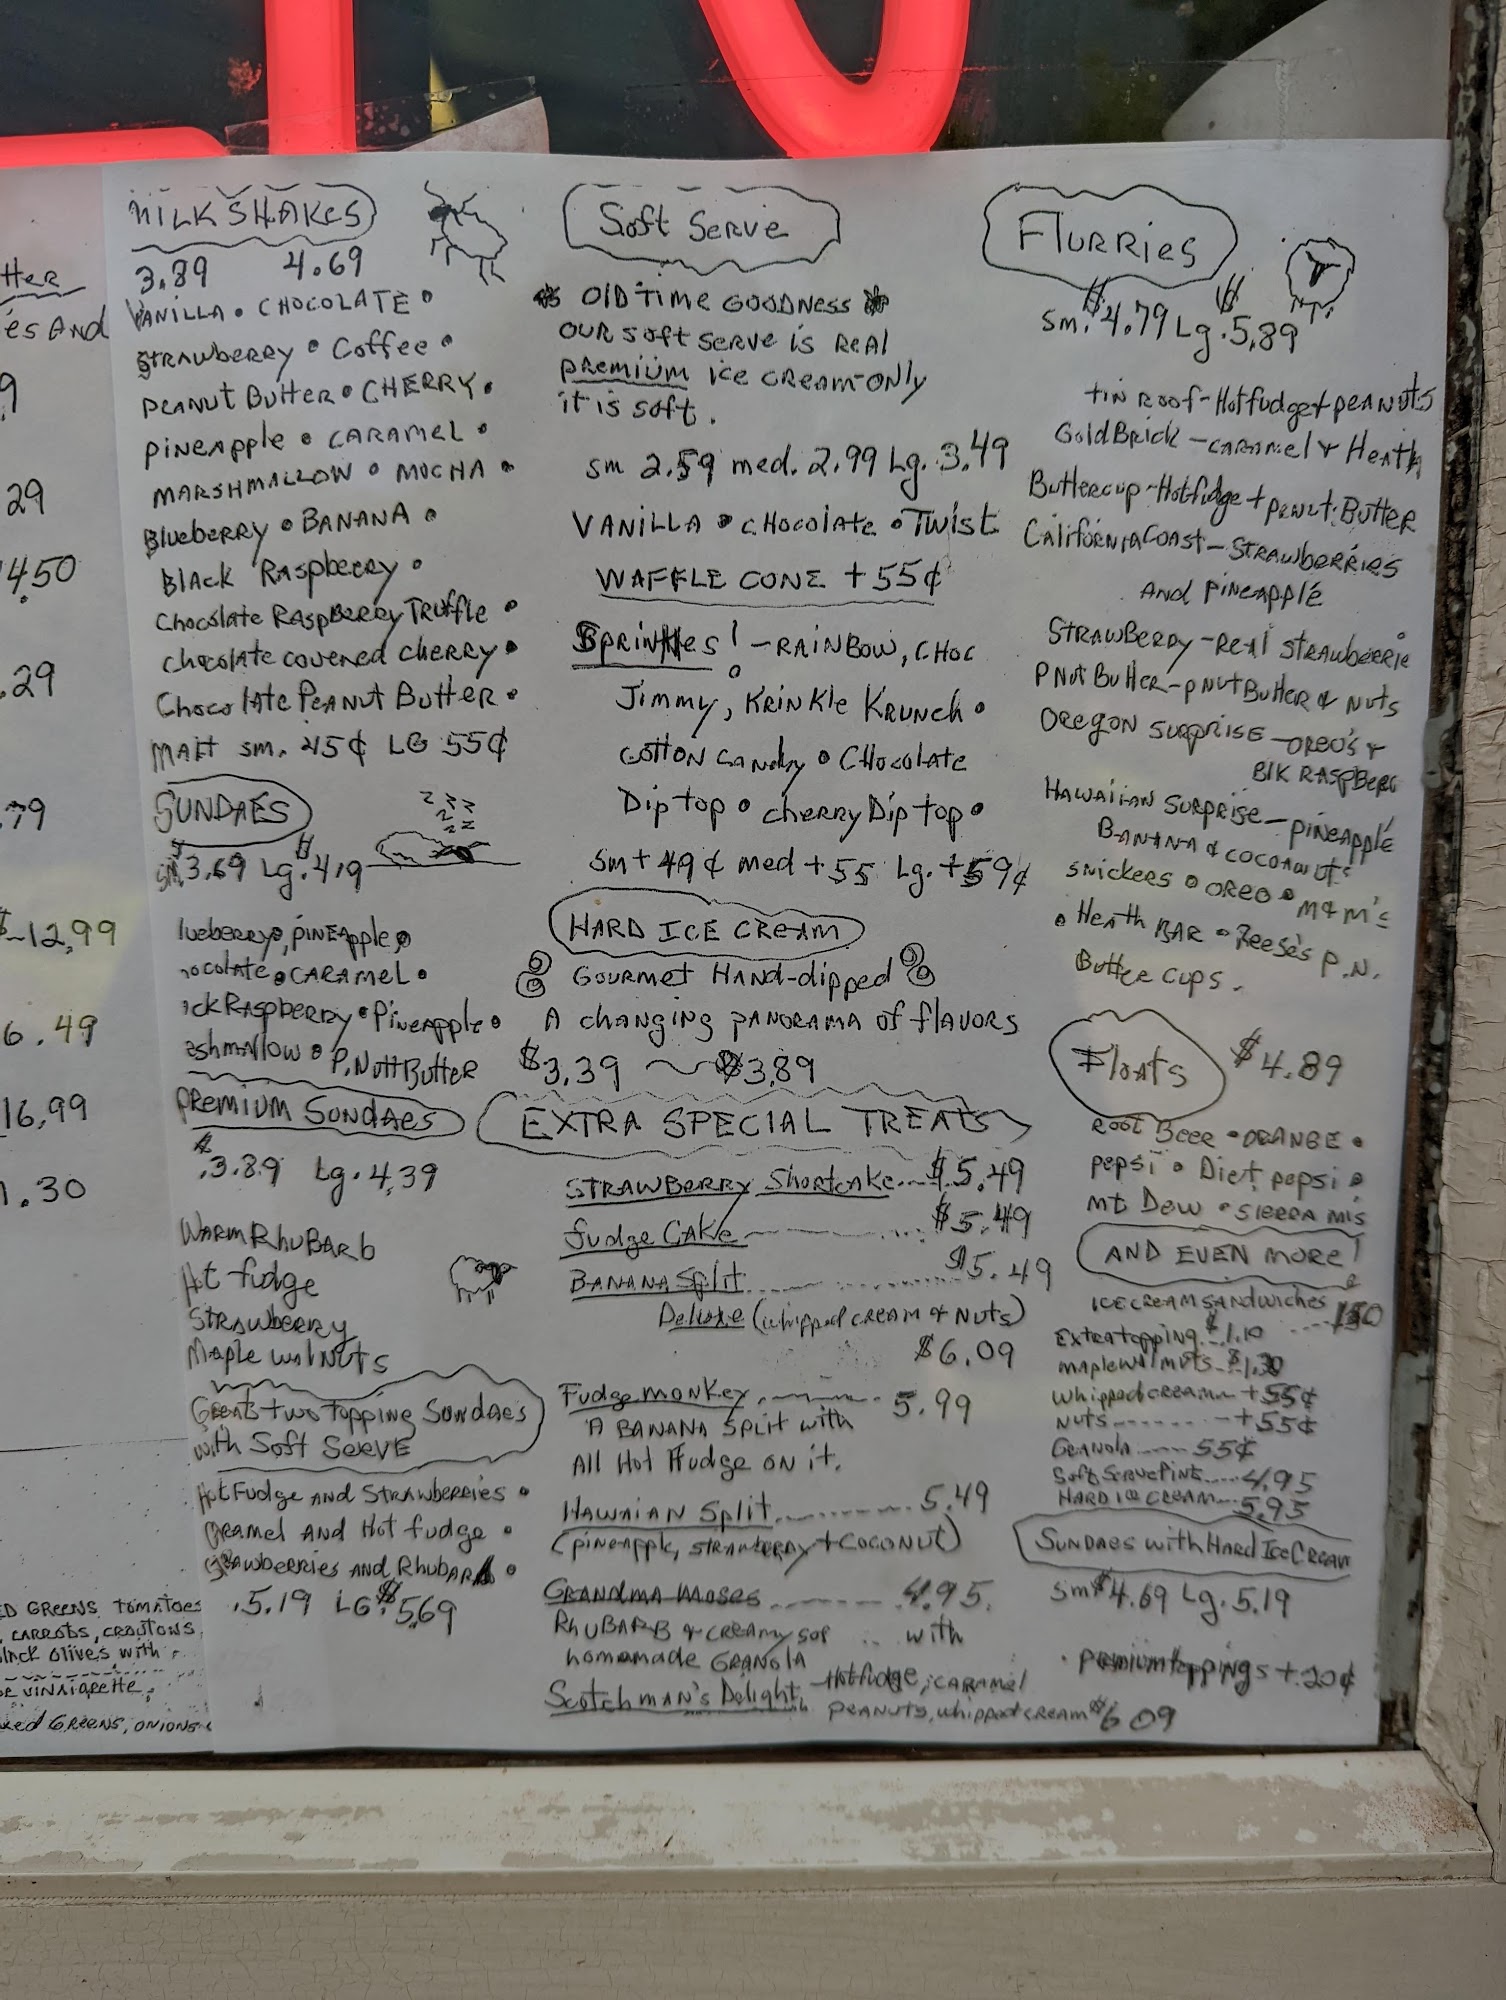 tter
es And
9
29
450
.29
.79
$-12,99
6.49
16,99
1.30
ED GREENS, TOMATOES
, CARROTS, CROUTONS,
lack Olives with
VINAIGRETTE,
xed GREENS, ONIONS
MILK SHAKES
3.89 4.69
VANILLA • CHOCOLATE •
STRAWBERRY • Coffee •
PEANUT BUTTER • CHERRY •
PINEAPPLE • CARAMEL •
MARSHMALLOW • MOCHA •
Blueberry • BANANA •
Black Raspberry •
Chocolate Raspberry Truffle •
chocolate covered cherry •
Chocolate Peanut Butter •
MALT sm. 45¢ LG 55¢
SUNDAES
z z z z z z
sm. $3.69 Lg. $4.19
lueberry •, PINEApple •
ocolate • CARAMEL •
ack Raspberry • Pineapple •
eshmallow • P. Nutt Butter
PREMIUM SUNDAES
$.3.89 Lg. 4.39
WARM RhuBARb
Hot fudge
Strawberry
Maple walNuts
Great two topping Sundaes
with Soft SERVE
Hot Fudge AND Strawberries •
Caramel AND Hot fudge •
Strawberries AND Rhubarb •
.5.19 LG. $5.69
Soft Serve
OLD TIME GOODNESS
OUR soft serve is Real
PREMIUM ice cream-only
it is soft.
sm 2.59 med. 2.99 Lg. 3.49
VANILLA • CHOCOLATE • TWIST
WAFFLE CONE + 55¢
Sprinkles! - RAINBOW, CHOC
Jimmy, KRINKLE KRUNCH •
COTTON CANDY • CHOCOLATE
Dip top • cherry Dip top •
sm + 49¢ med + 55 Lg. + 59¢
HARD ICE CREAM
GOURMET HAND-dipped
A changing PANORAMA of flavors
$3.39 ~ $3.89
EXTRA SPECIAL TREATS
STRAWBERRY Shortcake... $5.49
fudge CAKE ... $5.49
BANANA Split ... $5.49
Deluxe (whipped CREAM & NUTS)
$6.09
Fudge monkey ... 5.99
A BANANA SPLIT with
All Hot Fudge ON it.
HAWAIAN Split ... 5.49
(pineapple, strawberry + COCONUT)
GRANDMA MOSES ... 4.95.
RHUBARB & CREAMY with
homamade GRANOLA
Scotchman's Delight, - Hot fudge, CARAMEL
PEANUTS, whipped cream $6 09
Flurries
sm. $4.79 Lg. $5.89
tin Roof - Hot fudge + peanuts
Gold Brick - CARAMEL + Heath
Buttercup - Hot fudge + penut Butter
California Coast - Strawberries
And pineapple
STRAWBERRY - real strawberrie
P Nut Butter - p Nut Butter & Nuts
OREGON SURPRISE - OREO'S +
BLK RASPBERR
HAWAIIAN SURPRISE - pineapple
BANANA & COCONUT
SNICKERS • OREO • M&M's
• Heath BAR • Reese's P.N.
Butter cups.
Floats $4.89
ROOT BEER • ORANGE •
pepsi • Diet pepsi •
Mt Dew • SIERRA MIS
AND EVEN MORE!
ICE CREAM SANDWICHES ... 1.50
Extra topping ... $1.10
maple walnuts ... $1.30
whipped CREAM + 55¢
NUTS ... + 55¢
GRANOLA ... 55¢
Soft Serve Pints ... 4.95
HARD ice CREAM ... 5.95
SUNDAES with HARD ICE CREAM
sm $4.69 Lg. 5.19
• PREMIUM toppings + .20¢